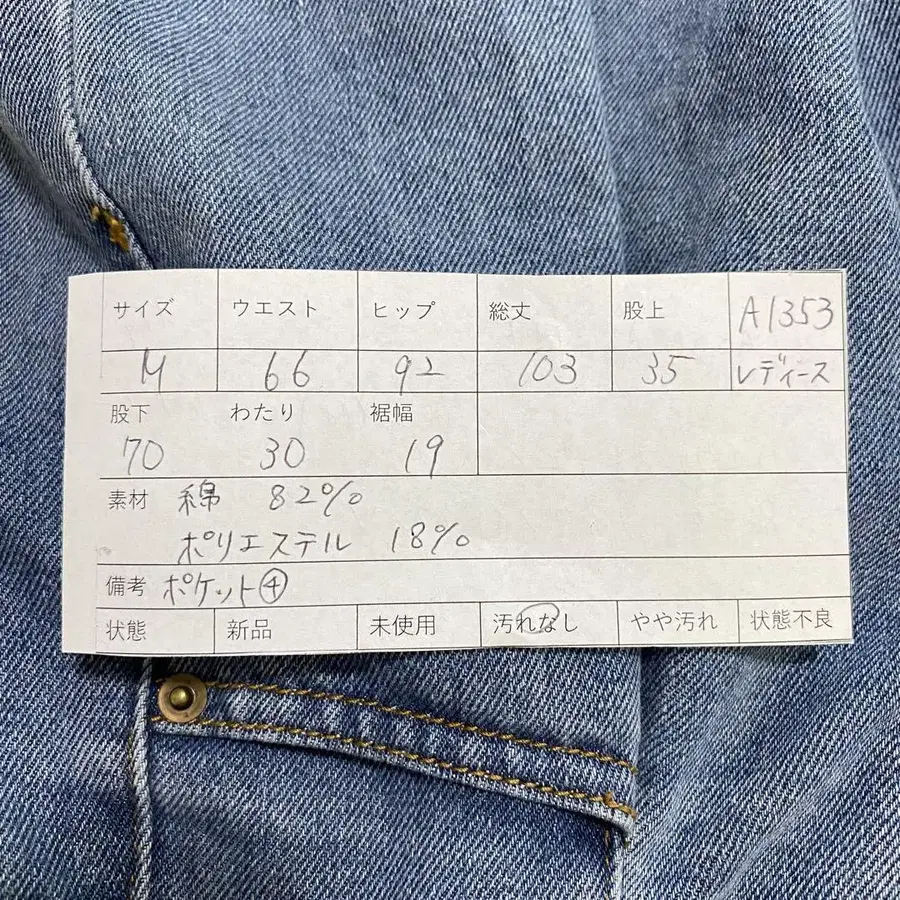 サイズ ウエスト ヒップ 総丈 股上 A1353
M 66 92 103 35 レディース
股下 わたり 裾幅
70 30 19
素材 綿 82%
ポリエステル 18%
備考 ポケット④
状態 新品 未使用 汚れなし やや汚れ 状態不良